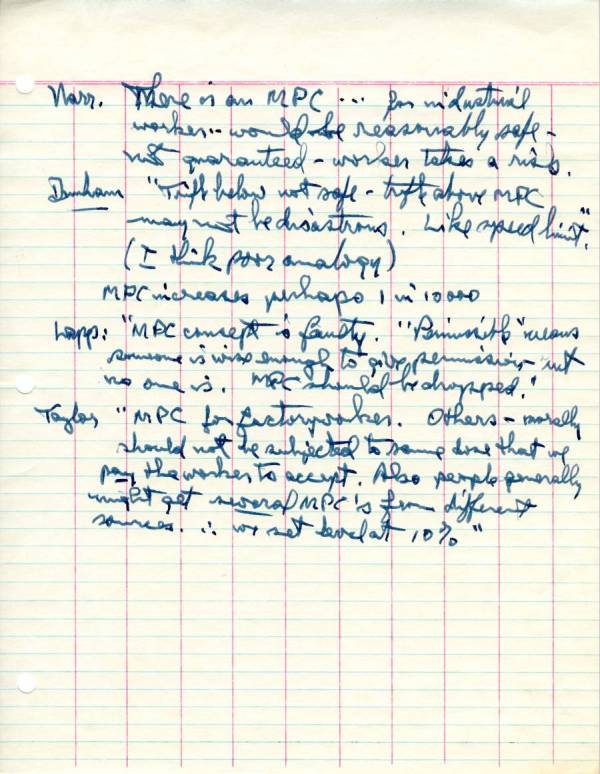 Narr. There is an MPC ... for industrial
worker - would be reasonably safe -
not guaranteed - worker takes a risk.
Dunham "Trifle below not safe - trifle above MPC
may not be disastrous. Like speed limit".
(I think poor analogy)
MPC increases perhaps 1 in 10000
Lapp: "MPC concept is faulty. "Permissible" means
someone is wise enough to give permission - but
no one is. MPC should be dropped."
Taylor "MPC for factory worker. Others - morally
should not be subjected to same dose that we
pay the worker to accept. Also people generally
might get several MPC's from different
sources. ∴ we set level at 10%"